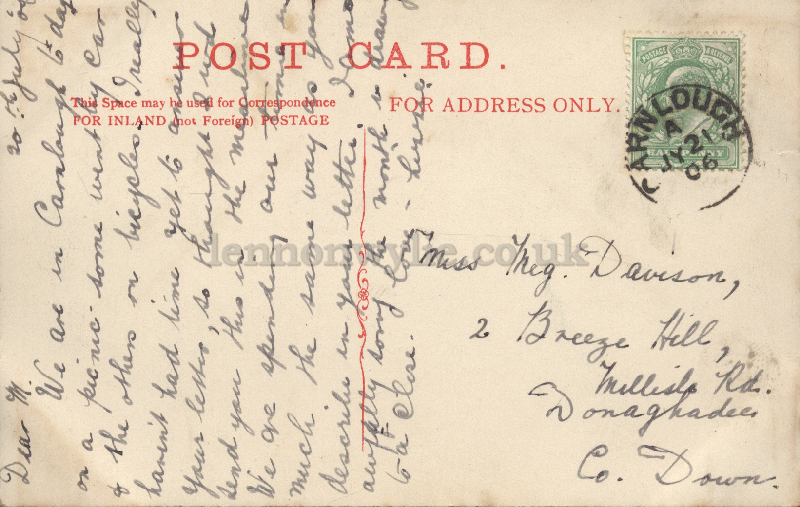 POST CARD.
This Space may be used for Correspondence
FOR INLAND (not Foreign) POSTAGE
FOR ADDRESS ONLY.
POSTAGE REVENUE
HALFPENNY
CARNLOUGH
A
JY 21
06
20th July 06
Dear M.
We are in Carnlough to day
on a picnic - some went by car
& the others on bicycles. I really
haven't had time yet to answer
your letter, so thought I'd just
send you this in the meantime
We are spending our time in
much the same way as you
describe in your letter. I am
awfully sorry the month is drawing
to a close. Love -
Miss Meg. Davison,
2 Breeze Hill,
Millisle Rd.
Donaghadee
Co. Down.
lennonwylie.co.uk